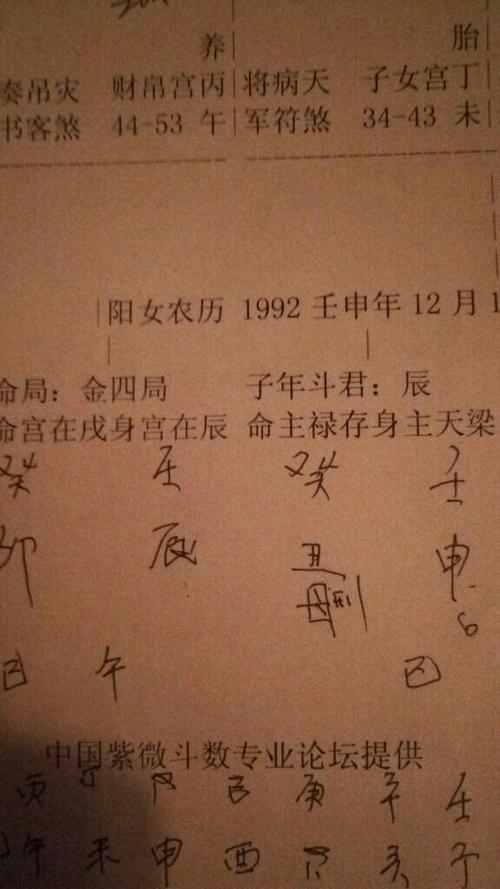 养│ 胎
奏吊灾 财帛宫丙│将病天 子女宫丁
书客煞 44-53 午│军符煞 34-43 未
│阳女农历 1992 壬申年 12 月 1
命局：金四局 子年斗君：辰
命宫在戌身宫在辰 命主禄存身主天梁
癸 壬 癸 壬
卯 辰 丑 申
6
午 巳
中国紫微斗数专业论坛提供
丙 丁 戊 己 庚 辛 壬
午 未 申 酉 戌 亥 子